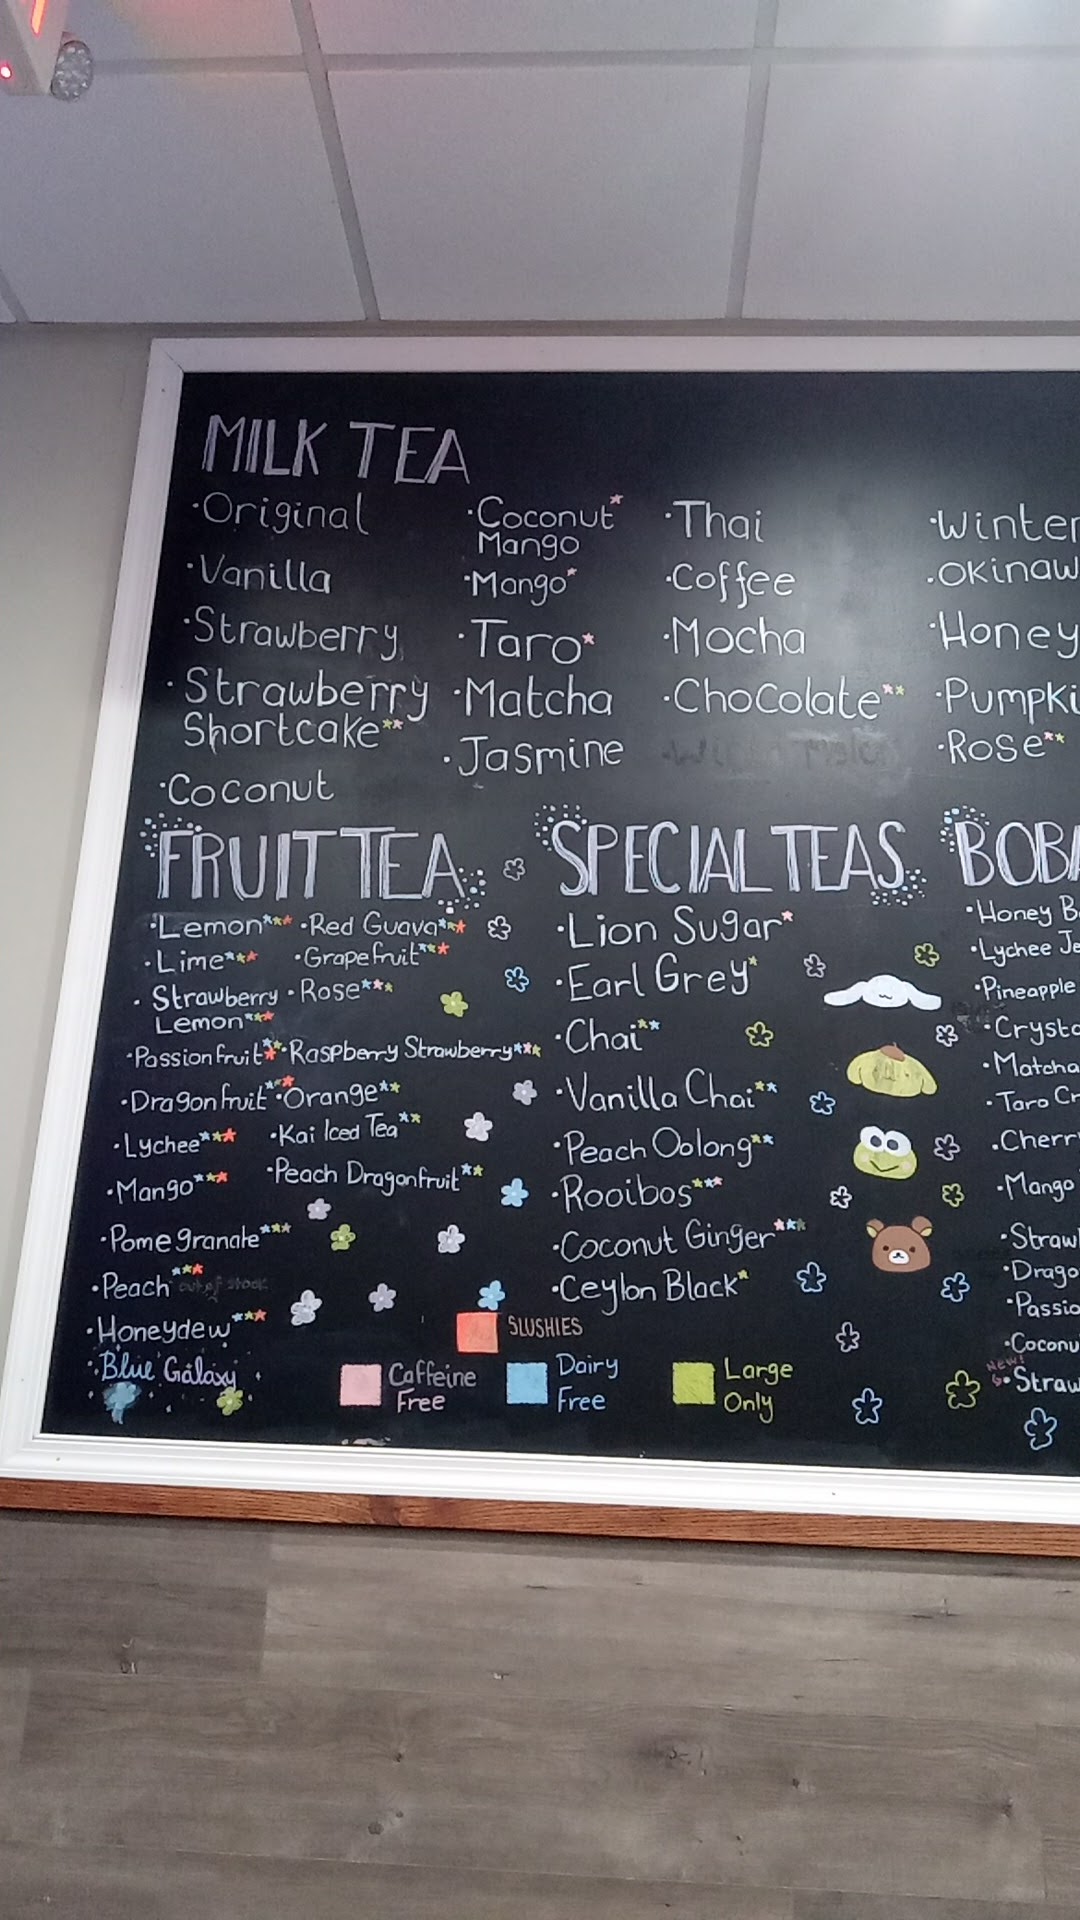 MILK TEA
·Original
·Vanilla
·Strawberry
·Strawberry
Shortcake**
·Coconut
·Coconut*
Mango
·Mango*
·Taro*
·Matcha
·Jasmine
·Thai
·Coffee
·Mocha
·Chocolate**
·Winter
·Okinaw
·Honey
·Pumpki
·Rose**
FRUIT TEA
·Lemon***
·Lime***
·Strawberry
Lemon***
·Passionfruit***
·Dragonfruit***
·Lychee***
·Mango***
·Pomegranate***
·Peach*** out of stock
·Honeydew***
·Blue Galaxy
·Red Guava***
·Grapefruit***
·Rose***
·Raspberry Strawberry***
·Orange**
·Kai Iced Tea**
·Peach Dragonfruit**
SPECIAL TEAS
·Lion Sugar*
·Earl Grey*
·Chai**
·Vanilla Chai**
·Peach Oolong**
·Rooibos***
·Coconut Ginger***
·Ceylon Black*
BOBA
·Honey B
·Lychee Je
·Pineapple
·Crysta
·Matcha
·Taro Cr
·Cherr
·Mango
·Straw
·Drago
·Passio
·Coconu
New!
·Straw
SLUSHIES
Caffeine
Free
Dairy
Free
Large
Only